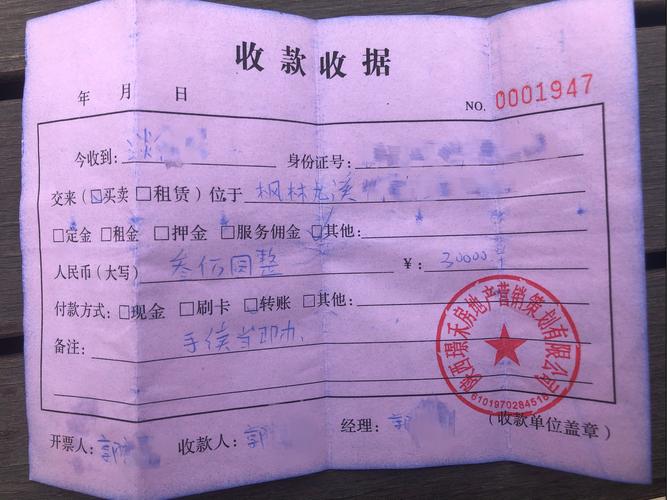 收款收据
年 月 日 NO. 0001947
今收到: 身份证号:
交来（☑买卖 □租赁）位于 枫林九溪
□定金 □租金 □押金 □服务佣金 □其他:
人民币（大写） 叁佰圆整 ￥: 30000
付款方式: □现金 □刷卡 □转账 □其他:
备注: 手续当即办
陕西璟禾房地产营销策划有限公司
6101970284516
开票人: 郭 收款人: 郭 经理: 郭 （收款单位盖章）